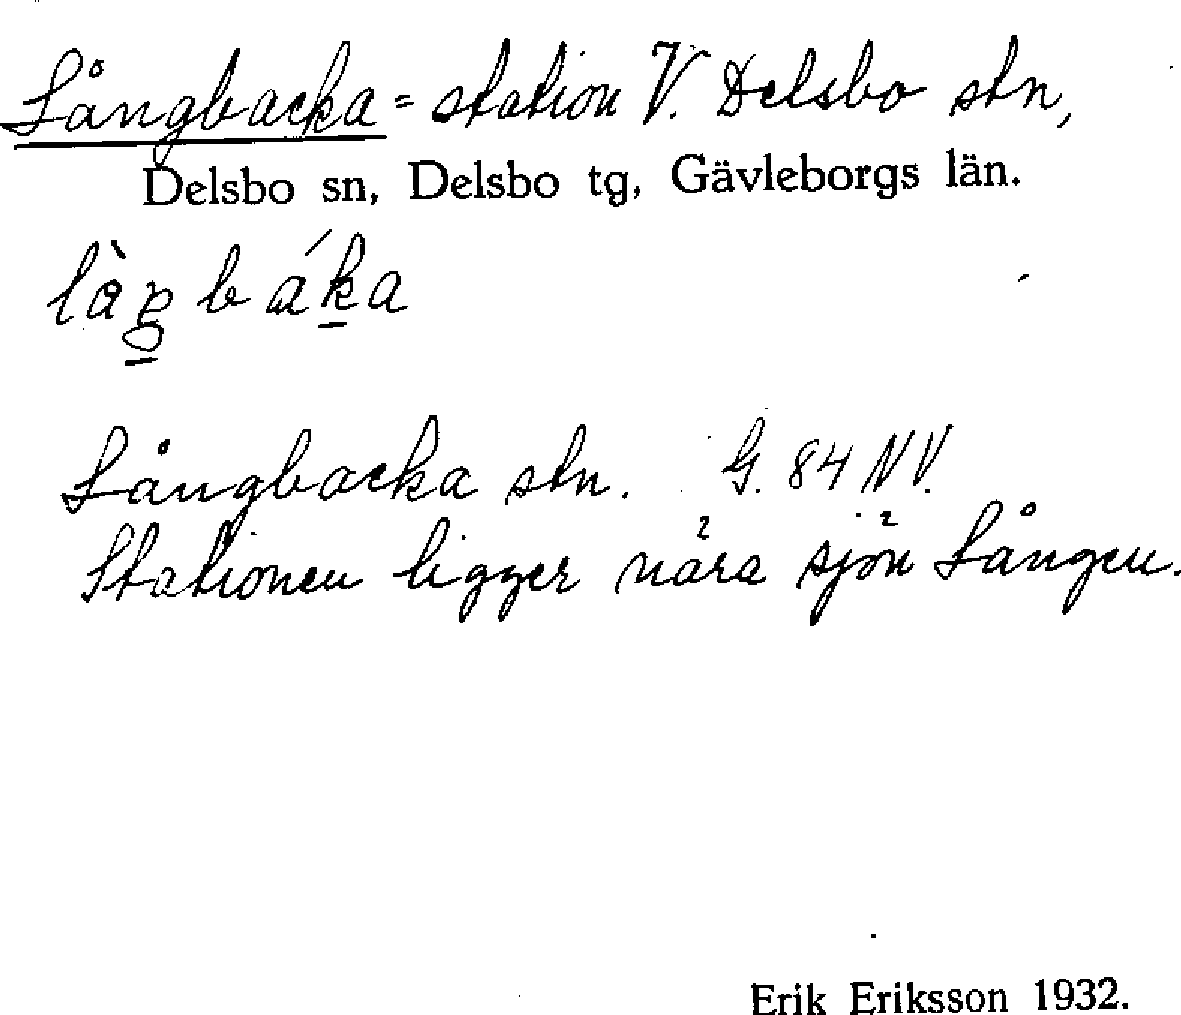 Långbacka = station V. Delsbo stn,
Delsbo sn, Delsbo tg, Gävleborgs län.
Långbacka stn. G. 84 NV.
Stationen ligger nära sjön Lången.
Erik Eriksson 1932.